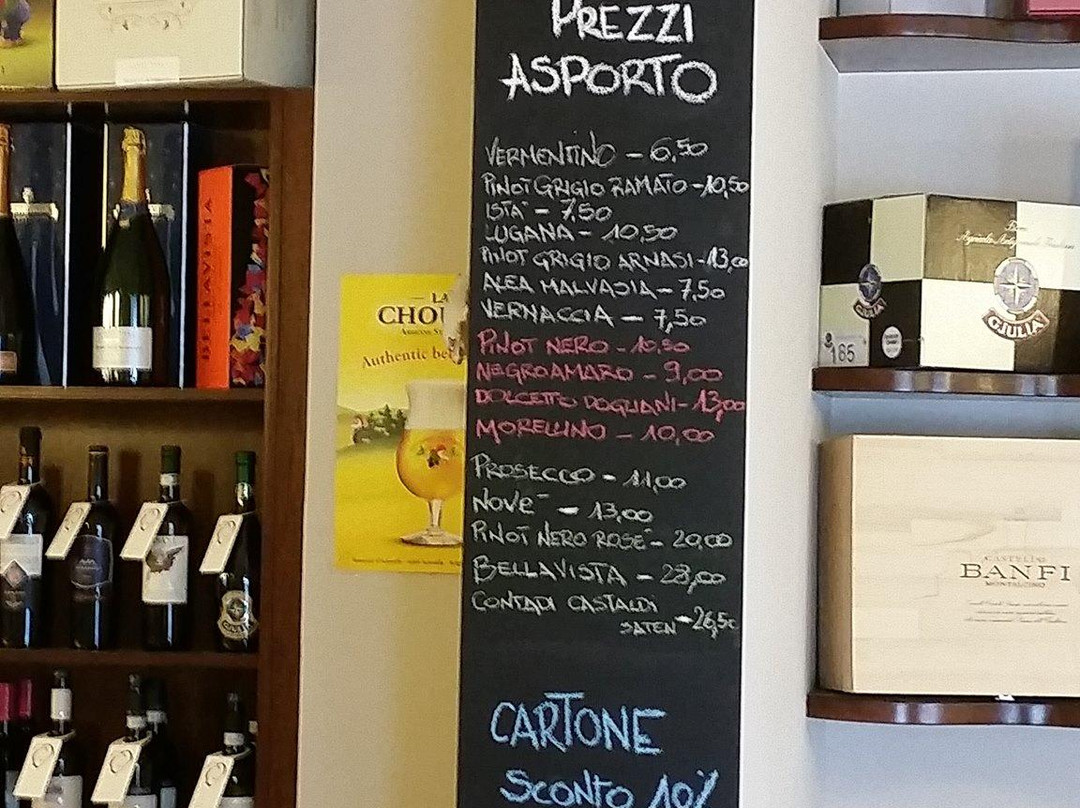 PREZZI
ASPORTO
VERMENTINO - 6,50
PINOT GRIGIO RAMATO - 10,50
ISTA' - 7,50
LUGANA - 10,50
PINOT GRIGIO ARNASI - 13,00
ALEA MALVASIA - 7,50
VERNACCIA - 7,50
PINOT NERO - 10,50
NEGROAMARO - 9,00
DOLCETTO DOGLIANI - 13,00
MORELLINO - 10,00
PROSECCO - 11,00
NOVE' - 13,00
PINOT NERO ROSE' - 20,00
BELLAVISTA - 28,00
CONTADI CASTALDI
SATEN - 26,50
CARTONE
SCONTO 10%
BELLAVISTA
LA
CHOU
Authentic be
GIULIA
GIULIA
185
GIULIA
CASTELLO
BANFI
MONTALCINO